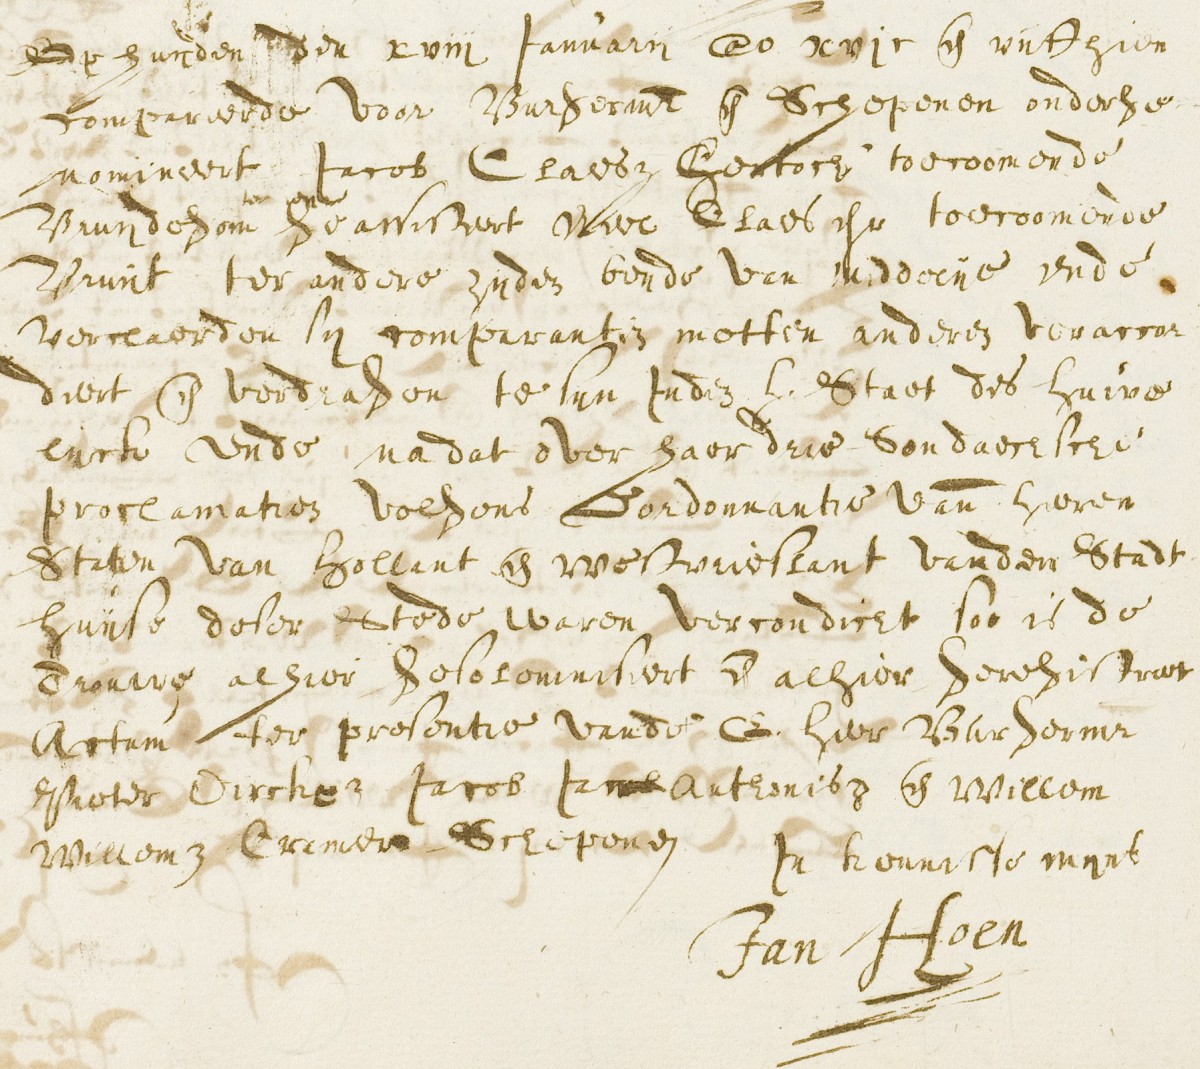 Op huijden den xviij Januarij Ao xvjc en vijffthien
compareerde voor Burgermr en Schepenen onderge
nomineert Jacob Claesz toecoomende
Bruijdegom ter eenre geassisteert Neel Claes dr toecoomende
Bruijt ter andere zijden beyde van Middelije ende
verclaerden sij comparanten metten anderen veraccor
deert en verdragen te sijn Inden h. Staet des huwe
lijcks ende nadat over haer drie Sondaechsche
proclamatien volgens D'ordonnantie van heeren
Staten van Hollant en Westvrieslant vanden Stadt
huijse deser Stede waren vercondicht soo is de
Trouwe alhier gesolemniseert en alhier geregistreert
Actum ter presentie vande E. heer Burgermr
Pieter Dircksz Jacob Anthonisz en Willem
Willemsz Cramer Schepenen In kennisse mijns
Jan Hoen